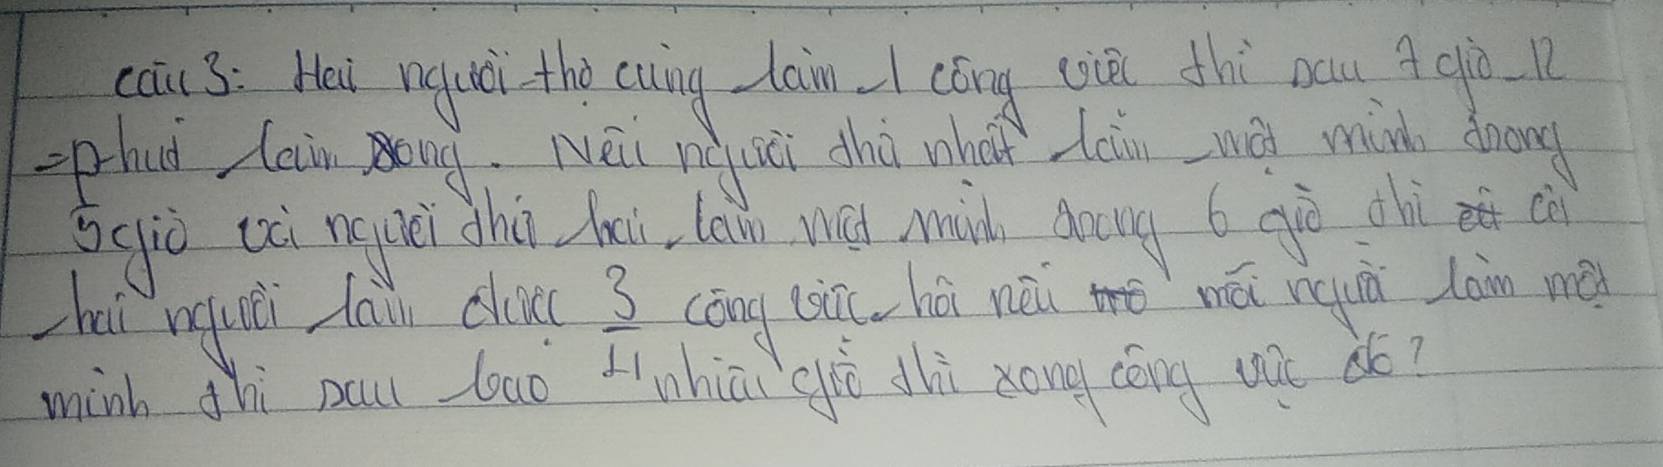 câu 3: Hai người thợ cùng làm 1 công việc thì sau 7 giờ 12
phút làm xong. Nếu người thứ nhất làm một mình trong
5 giờ và người thứ hai làm một mình trong 6 giờ thì cả
hai người làm được 3/4 công việc. hỏi nếu mỗi người làm một
mình thì sau bao nhiêu giờ thì xong công việc đó?